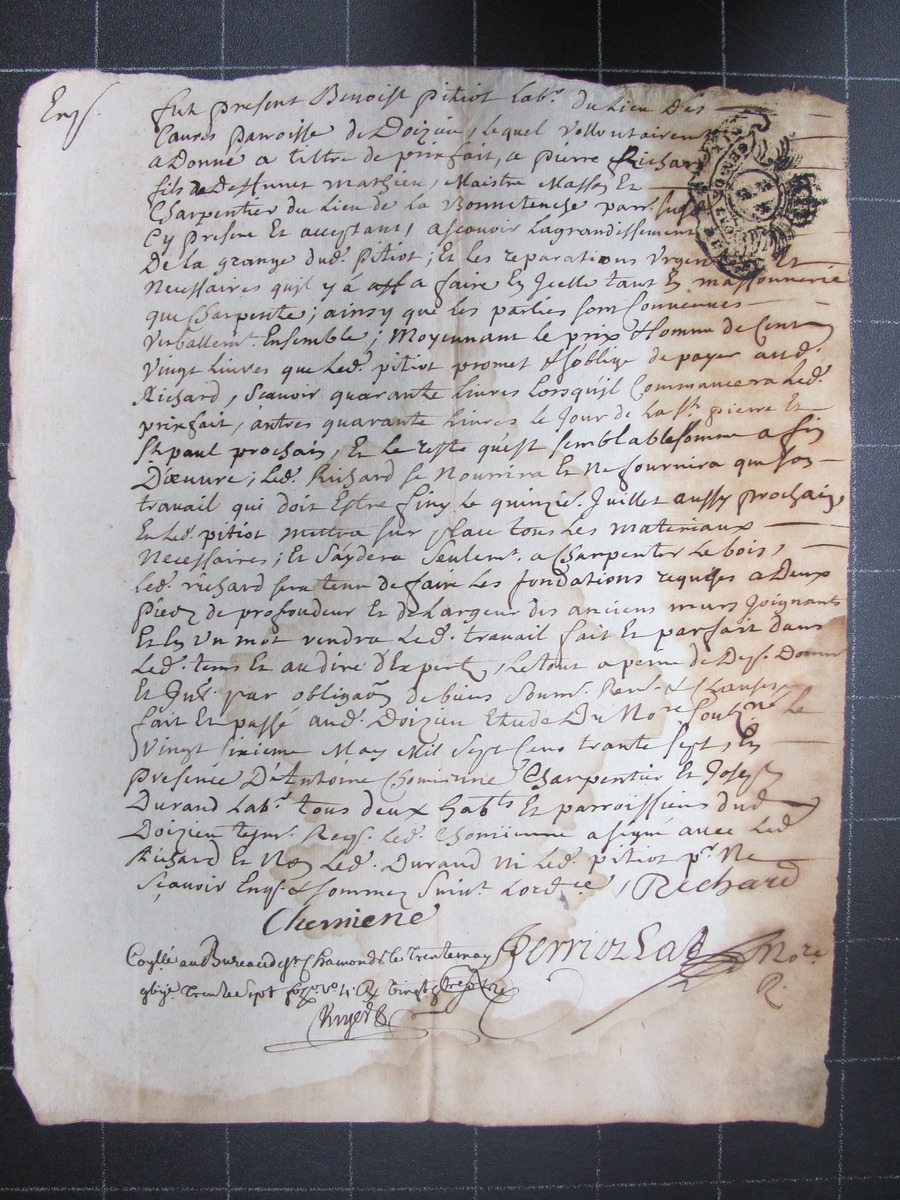 Fut present Benoist pitiot Lab.r du Lieu des
Caures parroisse de Doizieu, lequel vollontairem
a Donné a tiltre de prixfait, a pierre Richar
fils de Deffunct mathieu, Maistre Masson Et
Charpentier du Lieu de la Bonnetenche parr.
Cy present Et acceptant, ascavoir Lagrandissement
De la grange dud. pitiot; Et les reparations Urgen Et
Necessaires quil y á aff a faire En Jcelle tant En massonnerie
que Charpente; ainsy que les parties sont Convenues
Verballem.t Ensemble; Moyennant le prix & somme de Cent
Vingt Livres que Led. pitiot promet & soblige de payer aud.
Richard, Scavoir quarante Livres Lorsquil Commancera Led.
prixfait, autres quarante Livres le Jour de La st. pierre Et
St. paul prochain, Et Le reste qu'est semblable somme a fin
D'œuvre; Led. Richard se Nourrira Et Ne fournira que son
travail qui doit Estre finy le quinzie. Juillet aussy prochain
Et Led. pitiot mettra sur place tous Les materiaux
Necessaires; Et Saydera Seulem.t a Charpenter Le bois,
Led. richard sera tenu de faire Les fondations requises a Deux
pieds de profondeur Et de Largeur des anciens murs Joignants
Et En Un mot rendra Led. travail fait Et parfait dans
Led. tems Et au dire d'Expert, Le tout a peine de Dep. Domm
Et Int. par obligaon de biens Soum. Ren. & Clauses
fait Et passé aud. Doizieu Etude Du No.re Sous.ne Le
Vingt sixieme May Mil Sept Cens trante Sept, En
presence D'Antoine Chomienne Charpentier Et Joseph
Durand Lab.r tous deux hab.ts Et parroissiens dud.
Doizieu tesm. Reqs. Led. Chomienne a signé avec Led.
Richard Et Non Led. Durand Ni Led. pitiot p.r Ne
Scavoir Enqs. & sommez Suiv.t Lord.ce, Richard
Chemiene
Perriot
No.re
R.
Collé au Bureau de st Chamond le trente may
trente sept